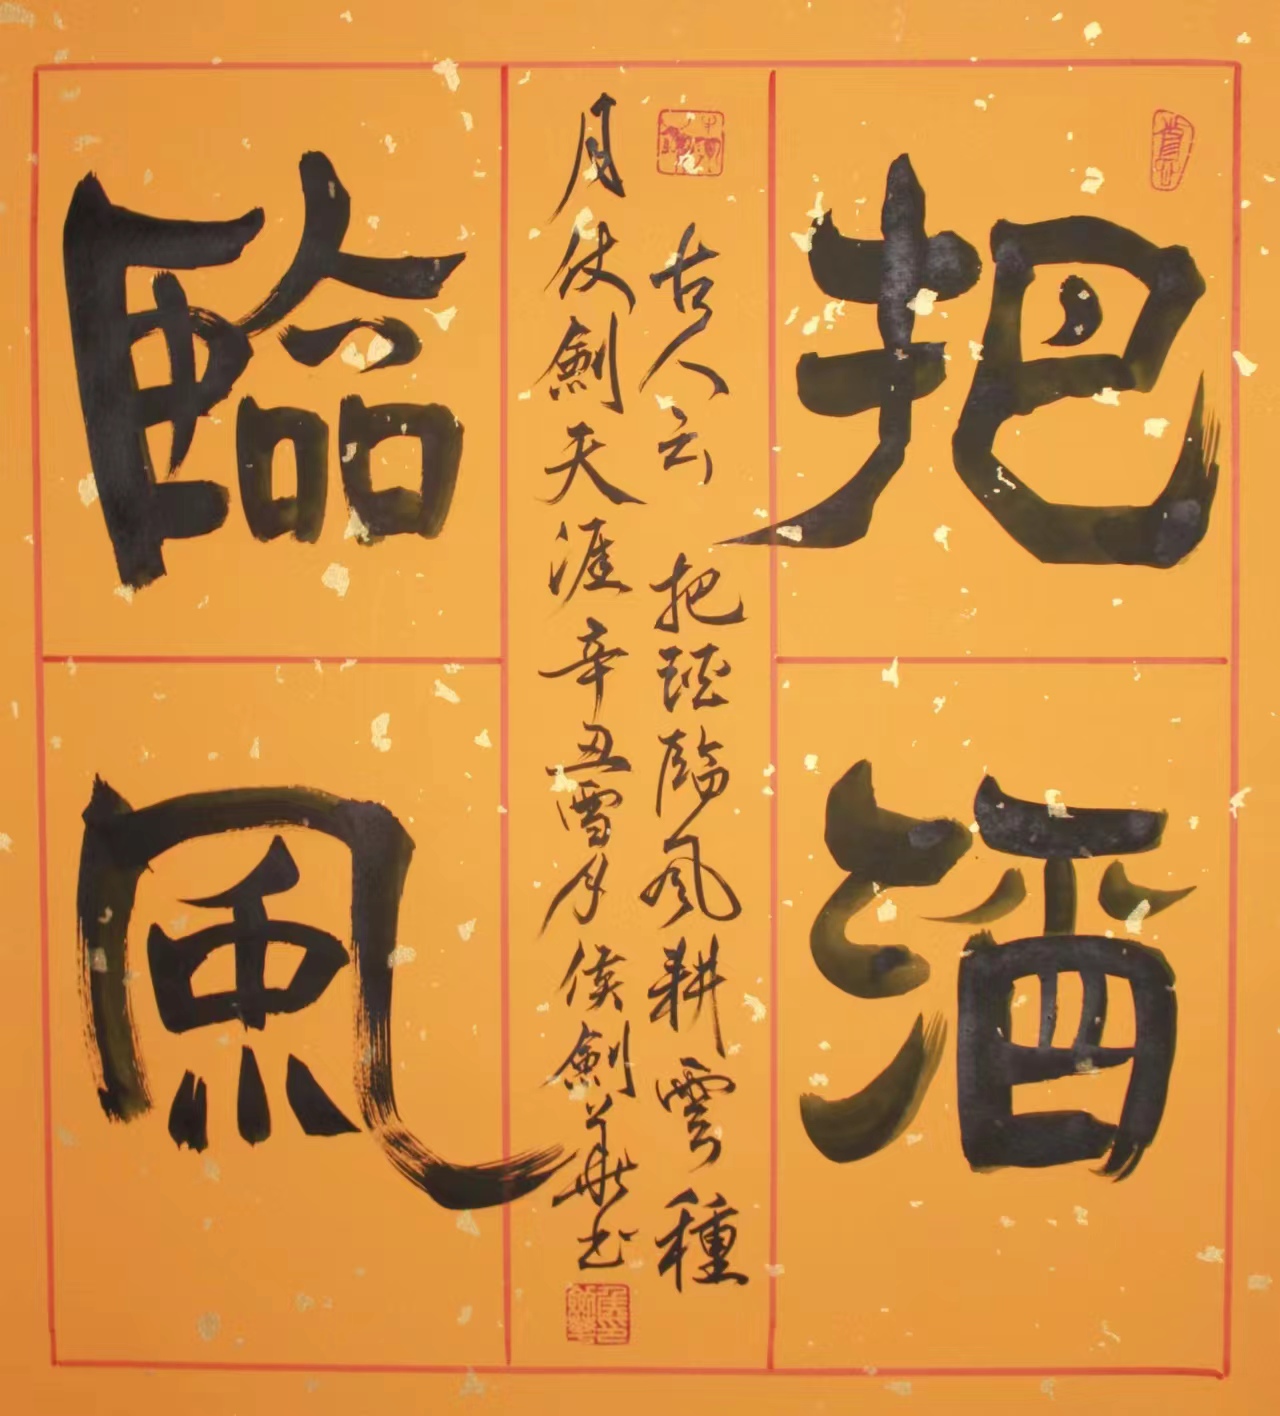 把酒
臨風
古人云把酒臨風耕雲種
月仗劍天涯辛丑雪月侯劍華书